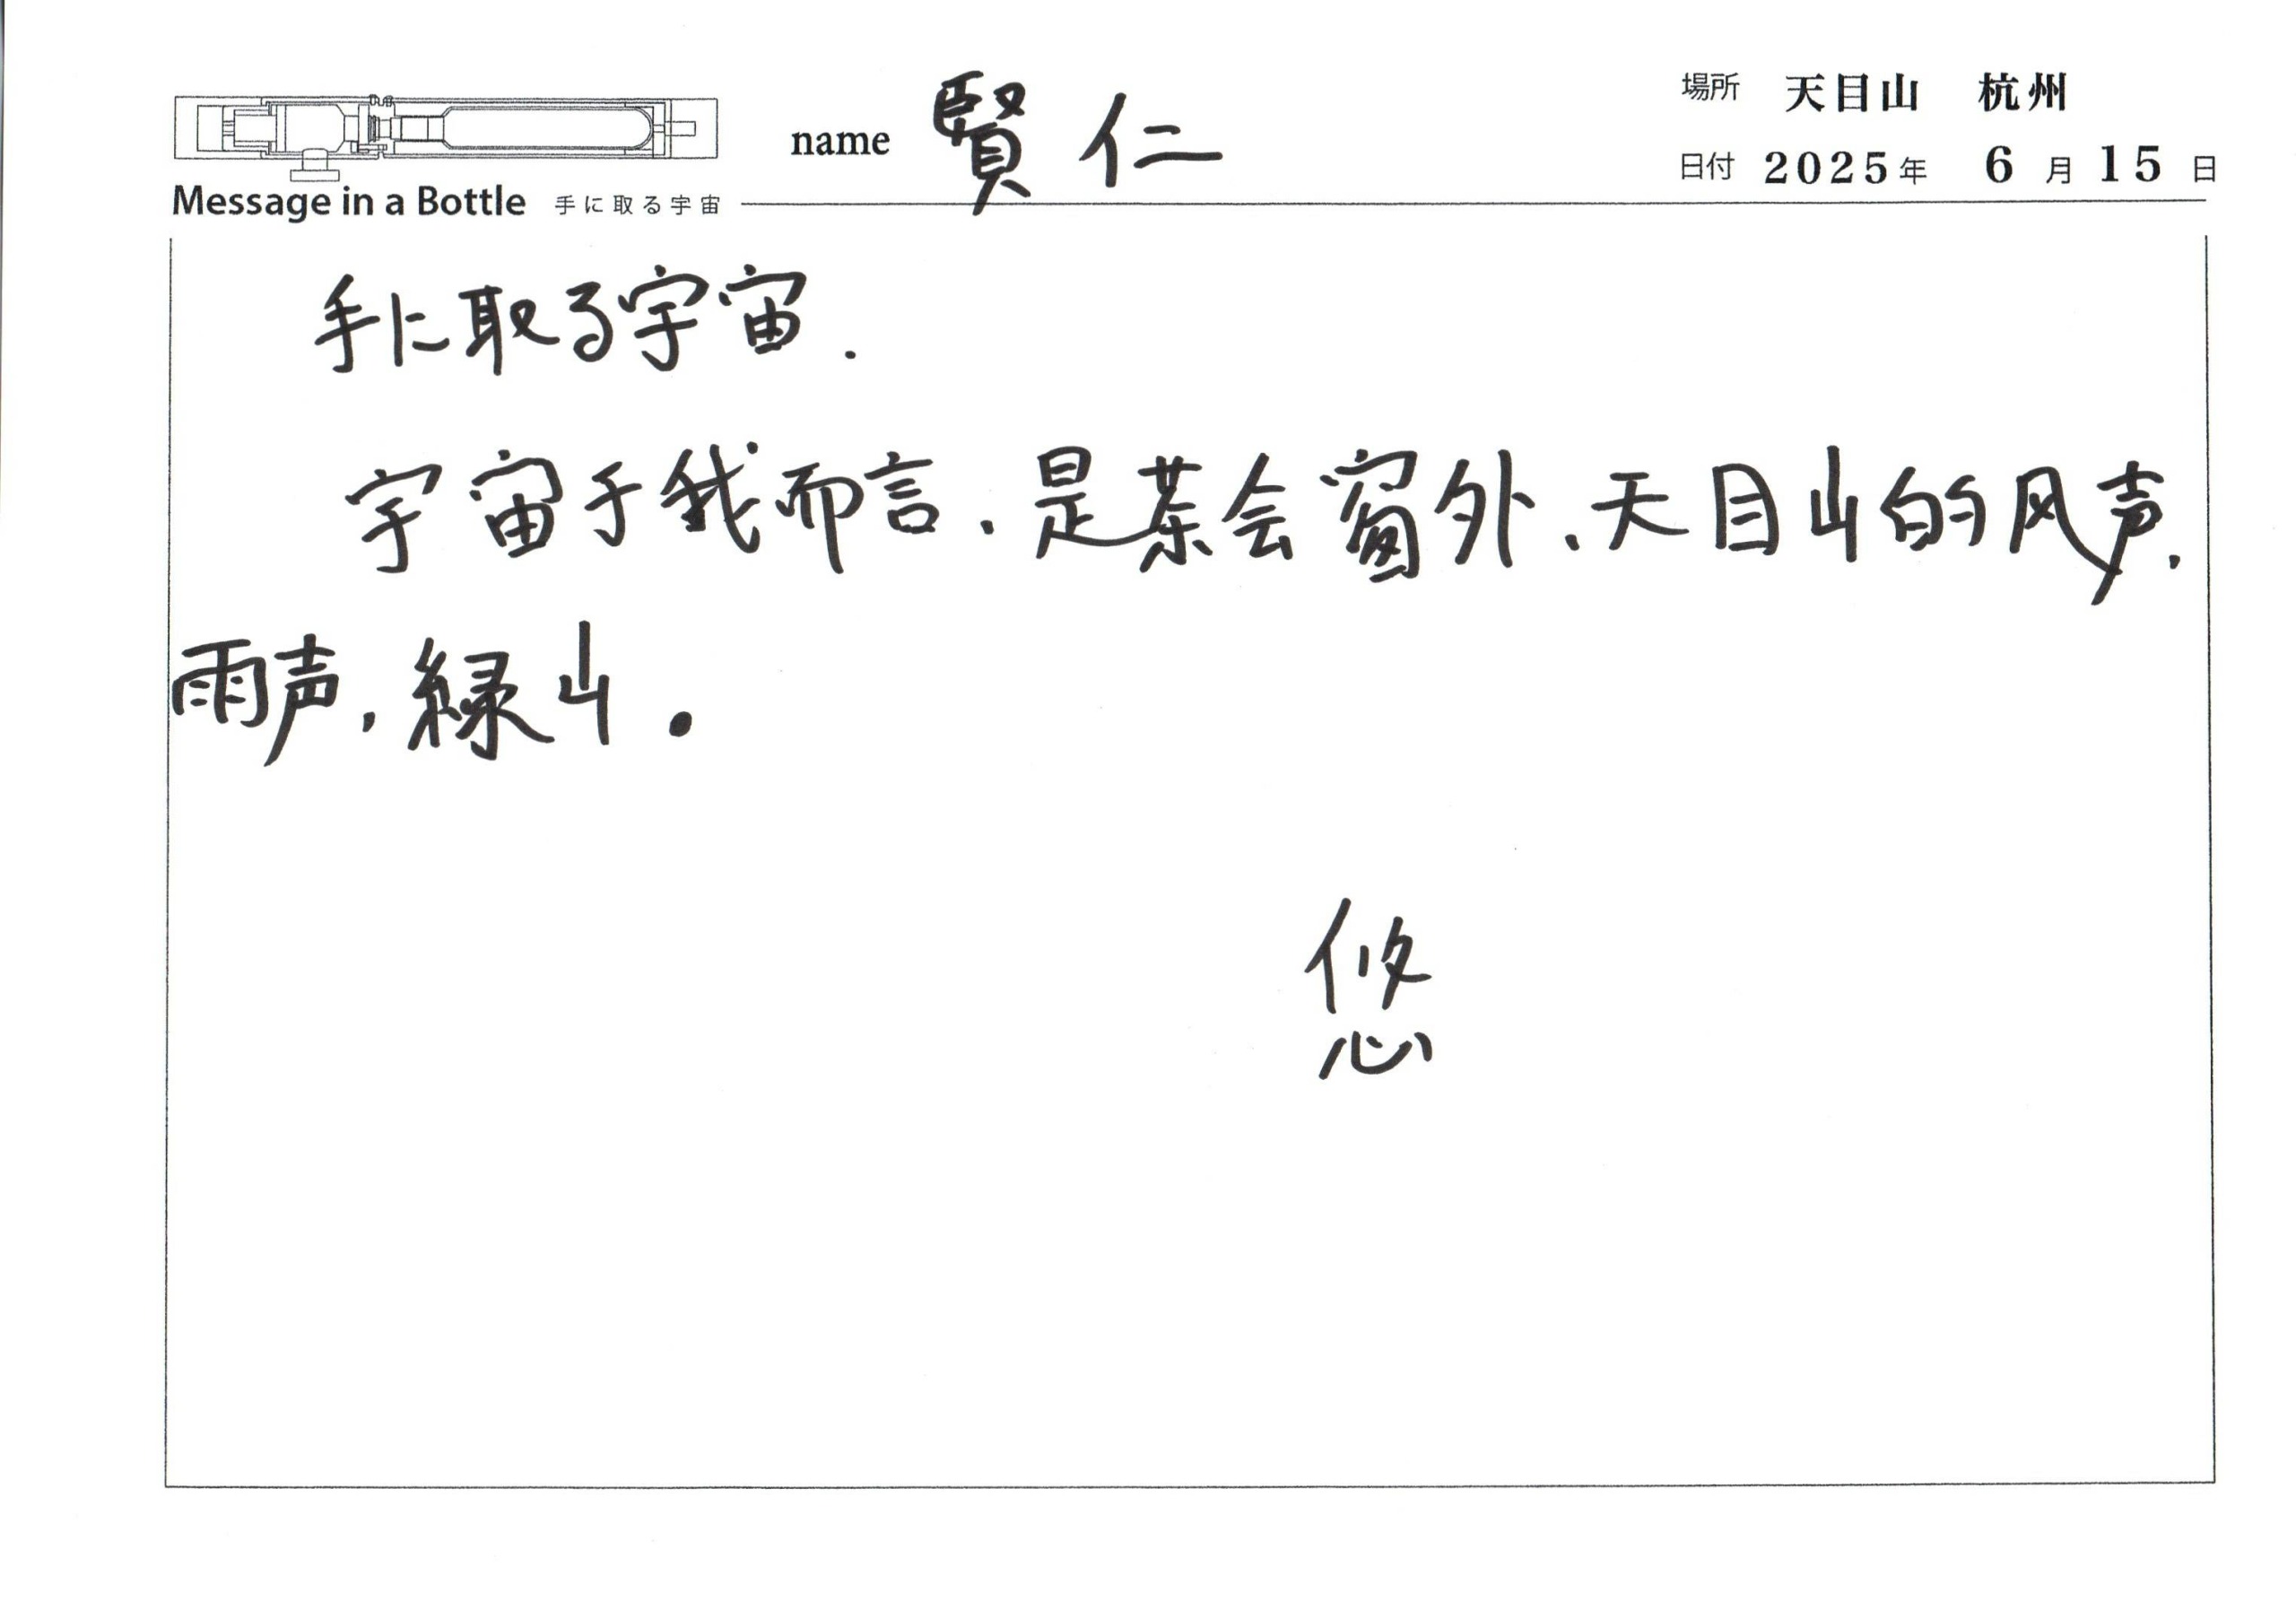 場所 天目山 杭州
name 賢仁
日付 2025年 6月15日
Message in a Bottle 手に取る宇宙
手に取る宇宙.
宇宙于我而言、是茶会窗外、天目山的风声,
雨声,緑山.
悠